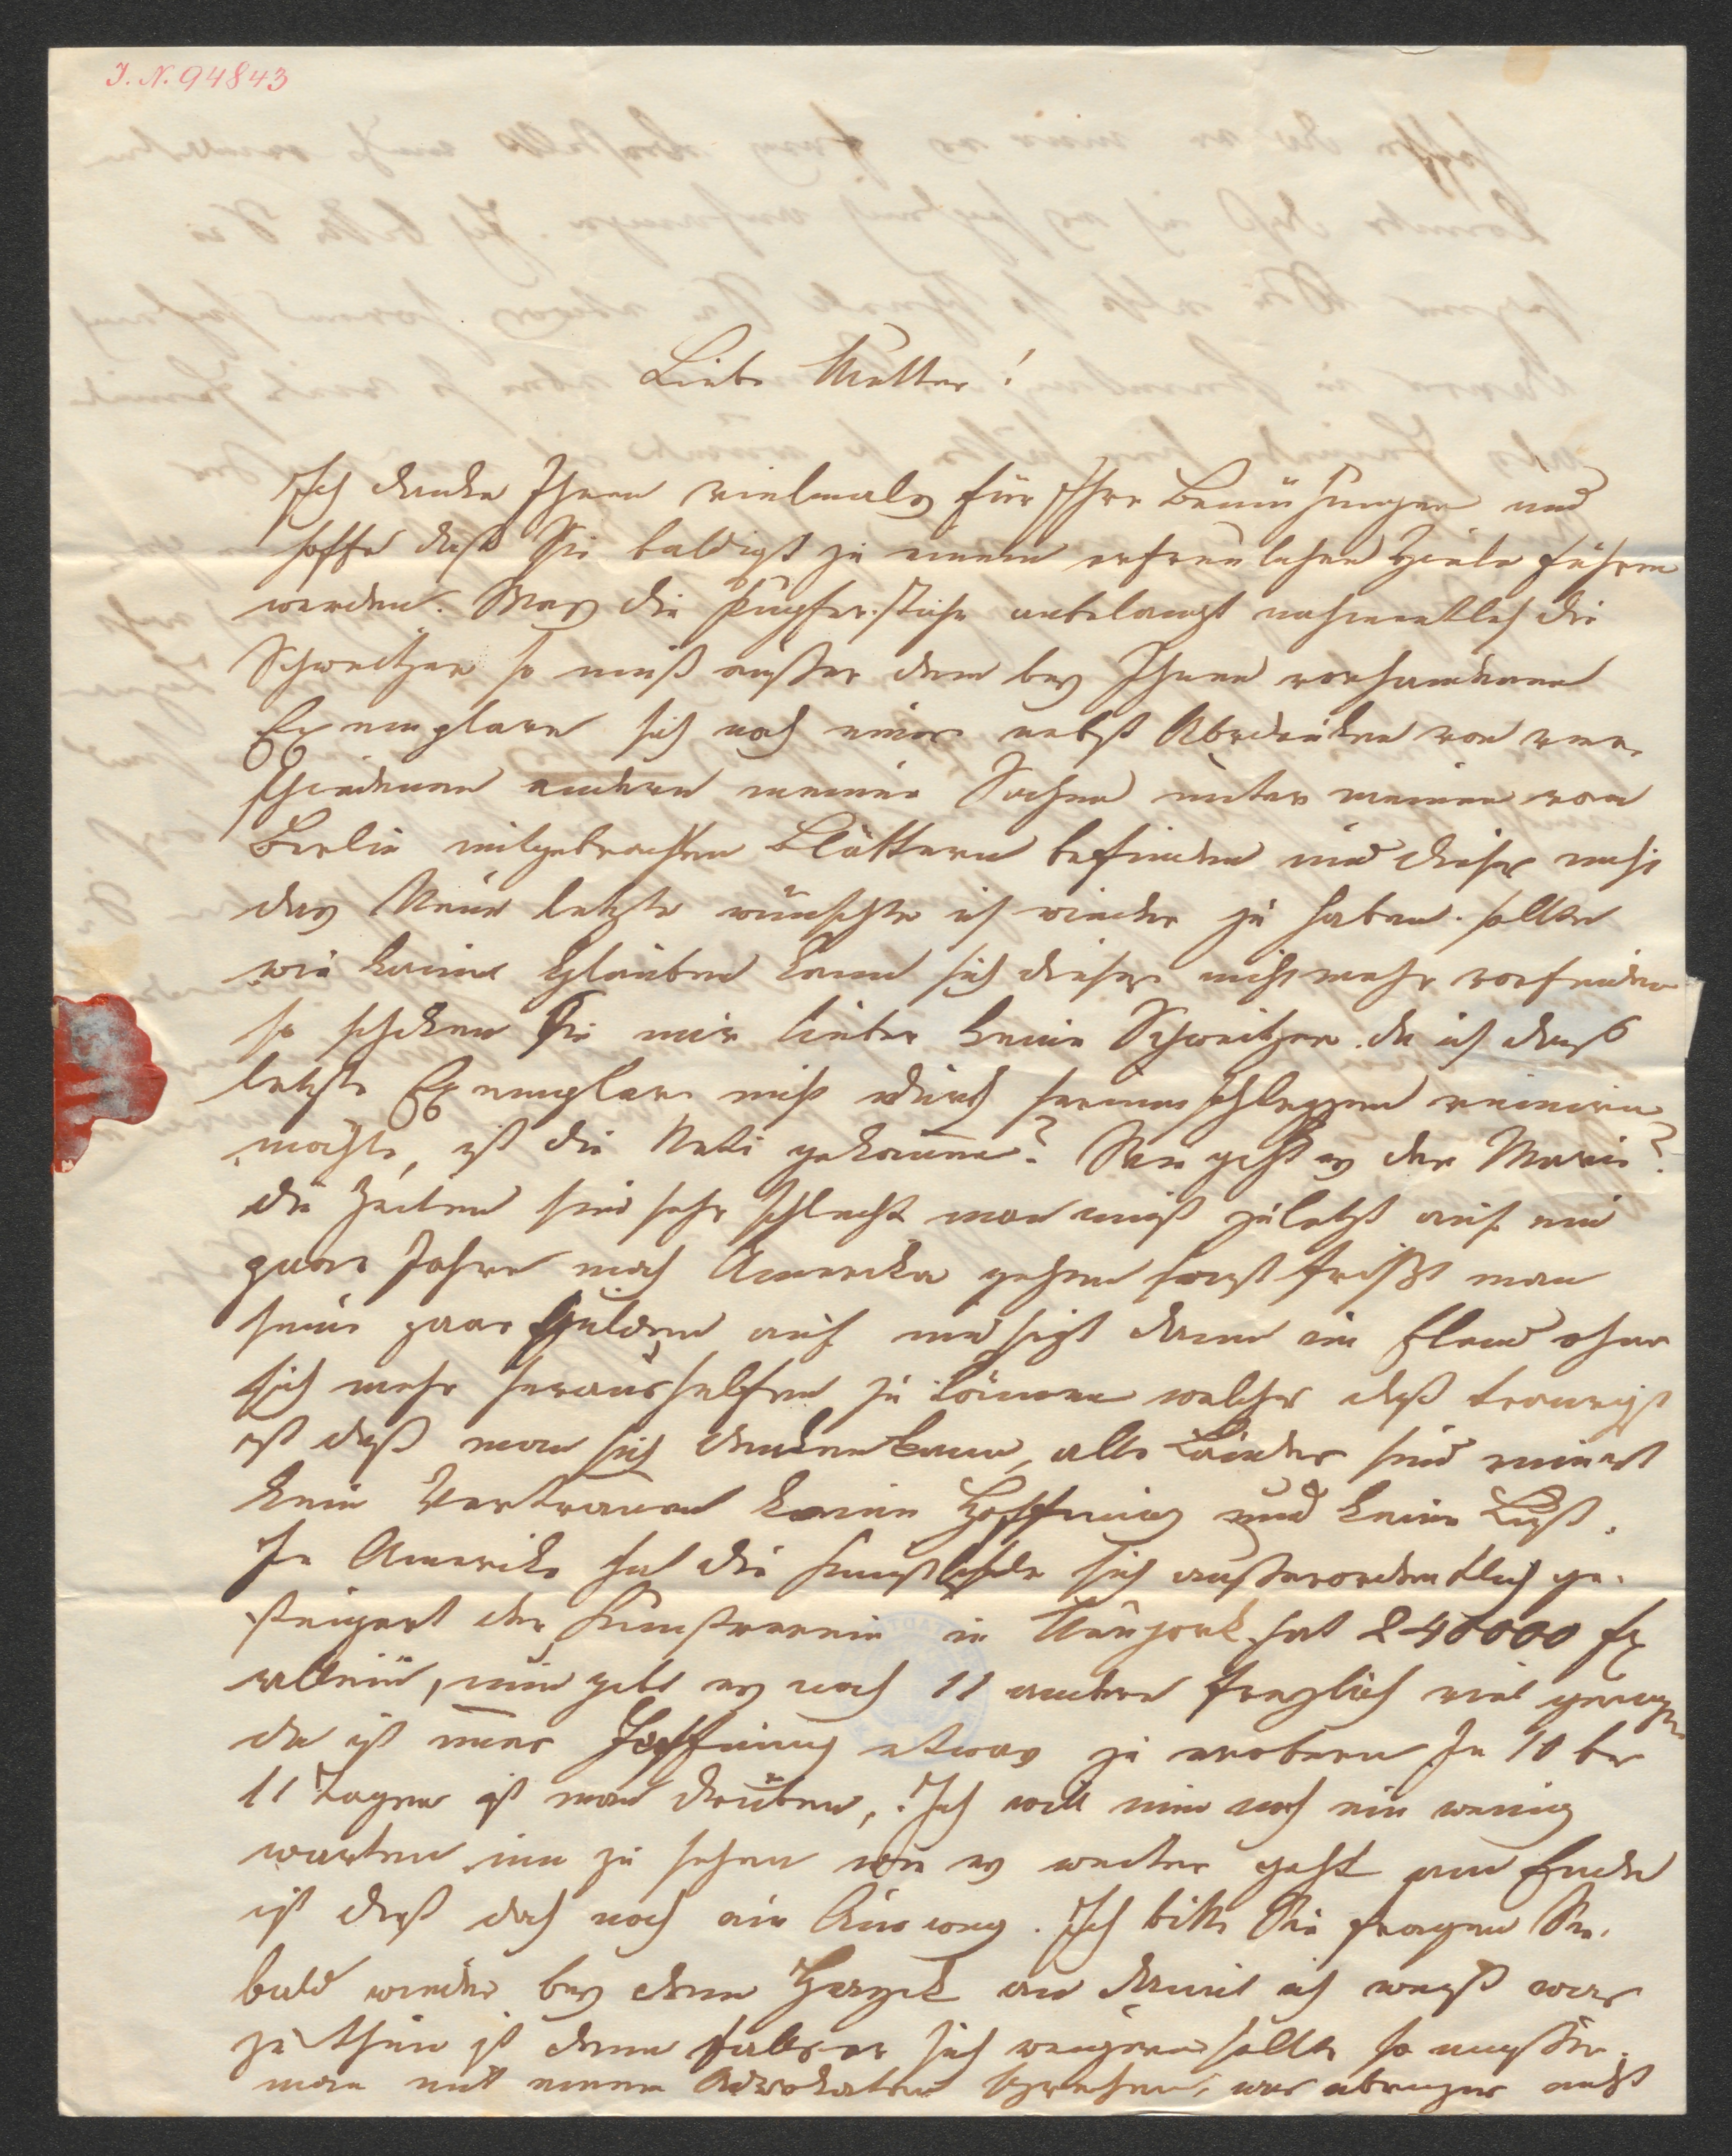 I. N. 94843
Liebe Mutter!
Ich danke Ihnen vielmals für Ihre Bemühungen und
hoffe daß Sie baldigst zu einem erfreulichen Ziele führen
werden. Was die Kupferstiche anbelangt nahmentlich die
Schweitzer so muß außer dem bey Ihnen vorhandenen
Exemplare sich noch eines nebst Abdrücken von ver-
schiedenen andern meiner Sachen unter meinen von
Berlin mitgebrachten Blättern befinden und dieses nicht
das Neue letzte wünschte ich wieder zu haben. sollte
wie kaum Glauben kann sich dieses nicht mehr vorfinden
so schicken Sie mir lieber keine Schweitzer da ich daß
letzte Exemplar nicht durch herumschleppen ruiniren
möchte, ist die Neti gekommen? Wie geht es der Marie?
die Zeiten sind sehr schlecht man muß zuletzt auf ein
paar Jahre nach Amerika gehen sonst frißt man
seine paar Gulden auf und sizt dann im Elend ohne
sich mehr heraushelfen zu können welches daß traurigst
ist daß man sich denken kann, alle Länder sind ruinirt
kein Vertrauen keine Hoffnung und keine Lust.
In Amerika hat die Kunstliebe sich außerordentlich ge-
steigert der Kunstverein in Neujork hat 240000 fx
allein, nun gibt es noch 11 andere freylich viel geringere
da ist immer Hoffnung etwas zu erobern In 10 bis
11 Tagen ist man drüben, Ich will nun noch ein wenig
warten um zu sehen wie es weiter geht am Ende
ist daß doch noch ein Ausweg. Ich bitte Sie fragen Sie
bald wieder bey dem an damit ich weiß was
zu thun ist denn falls er sich weigern sollte so müßte
man mit einem Advokaten sprechen, was nicht